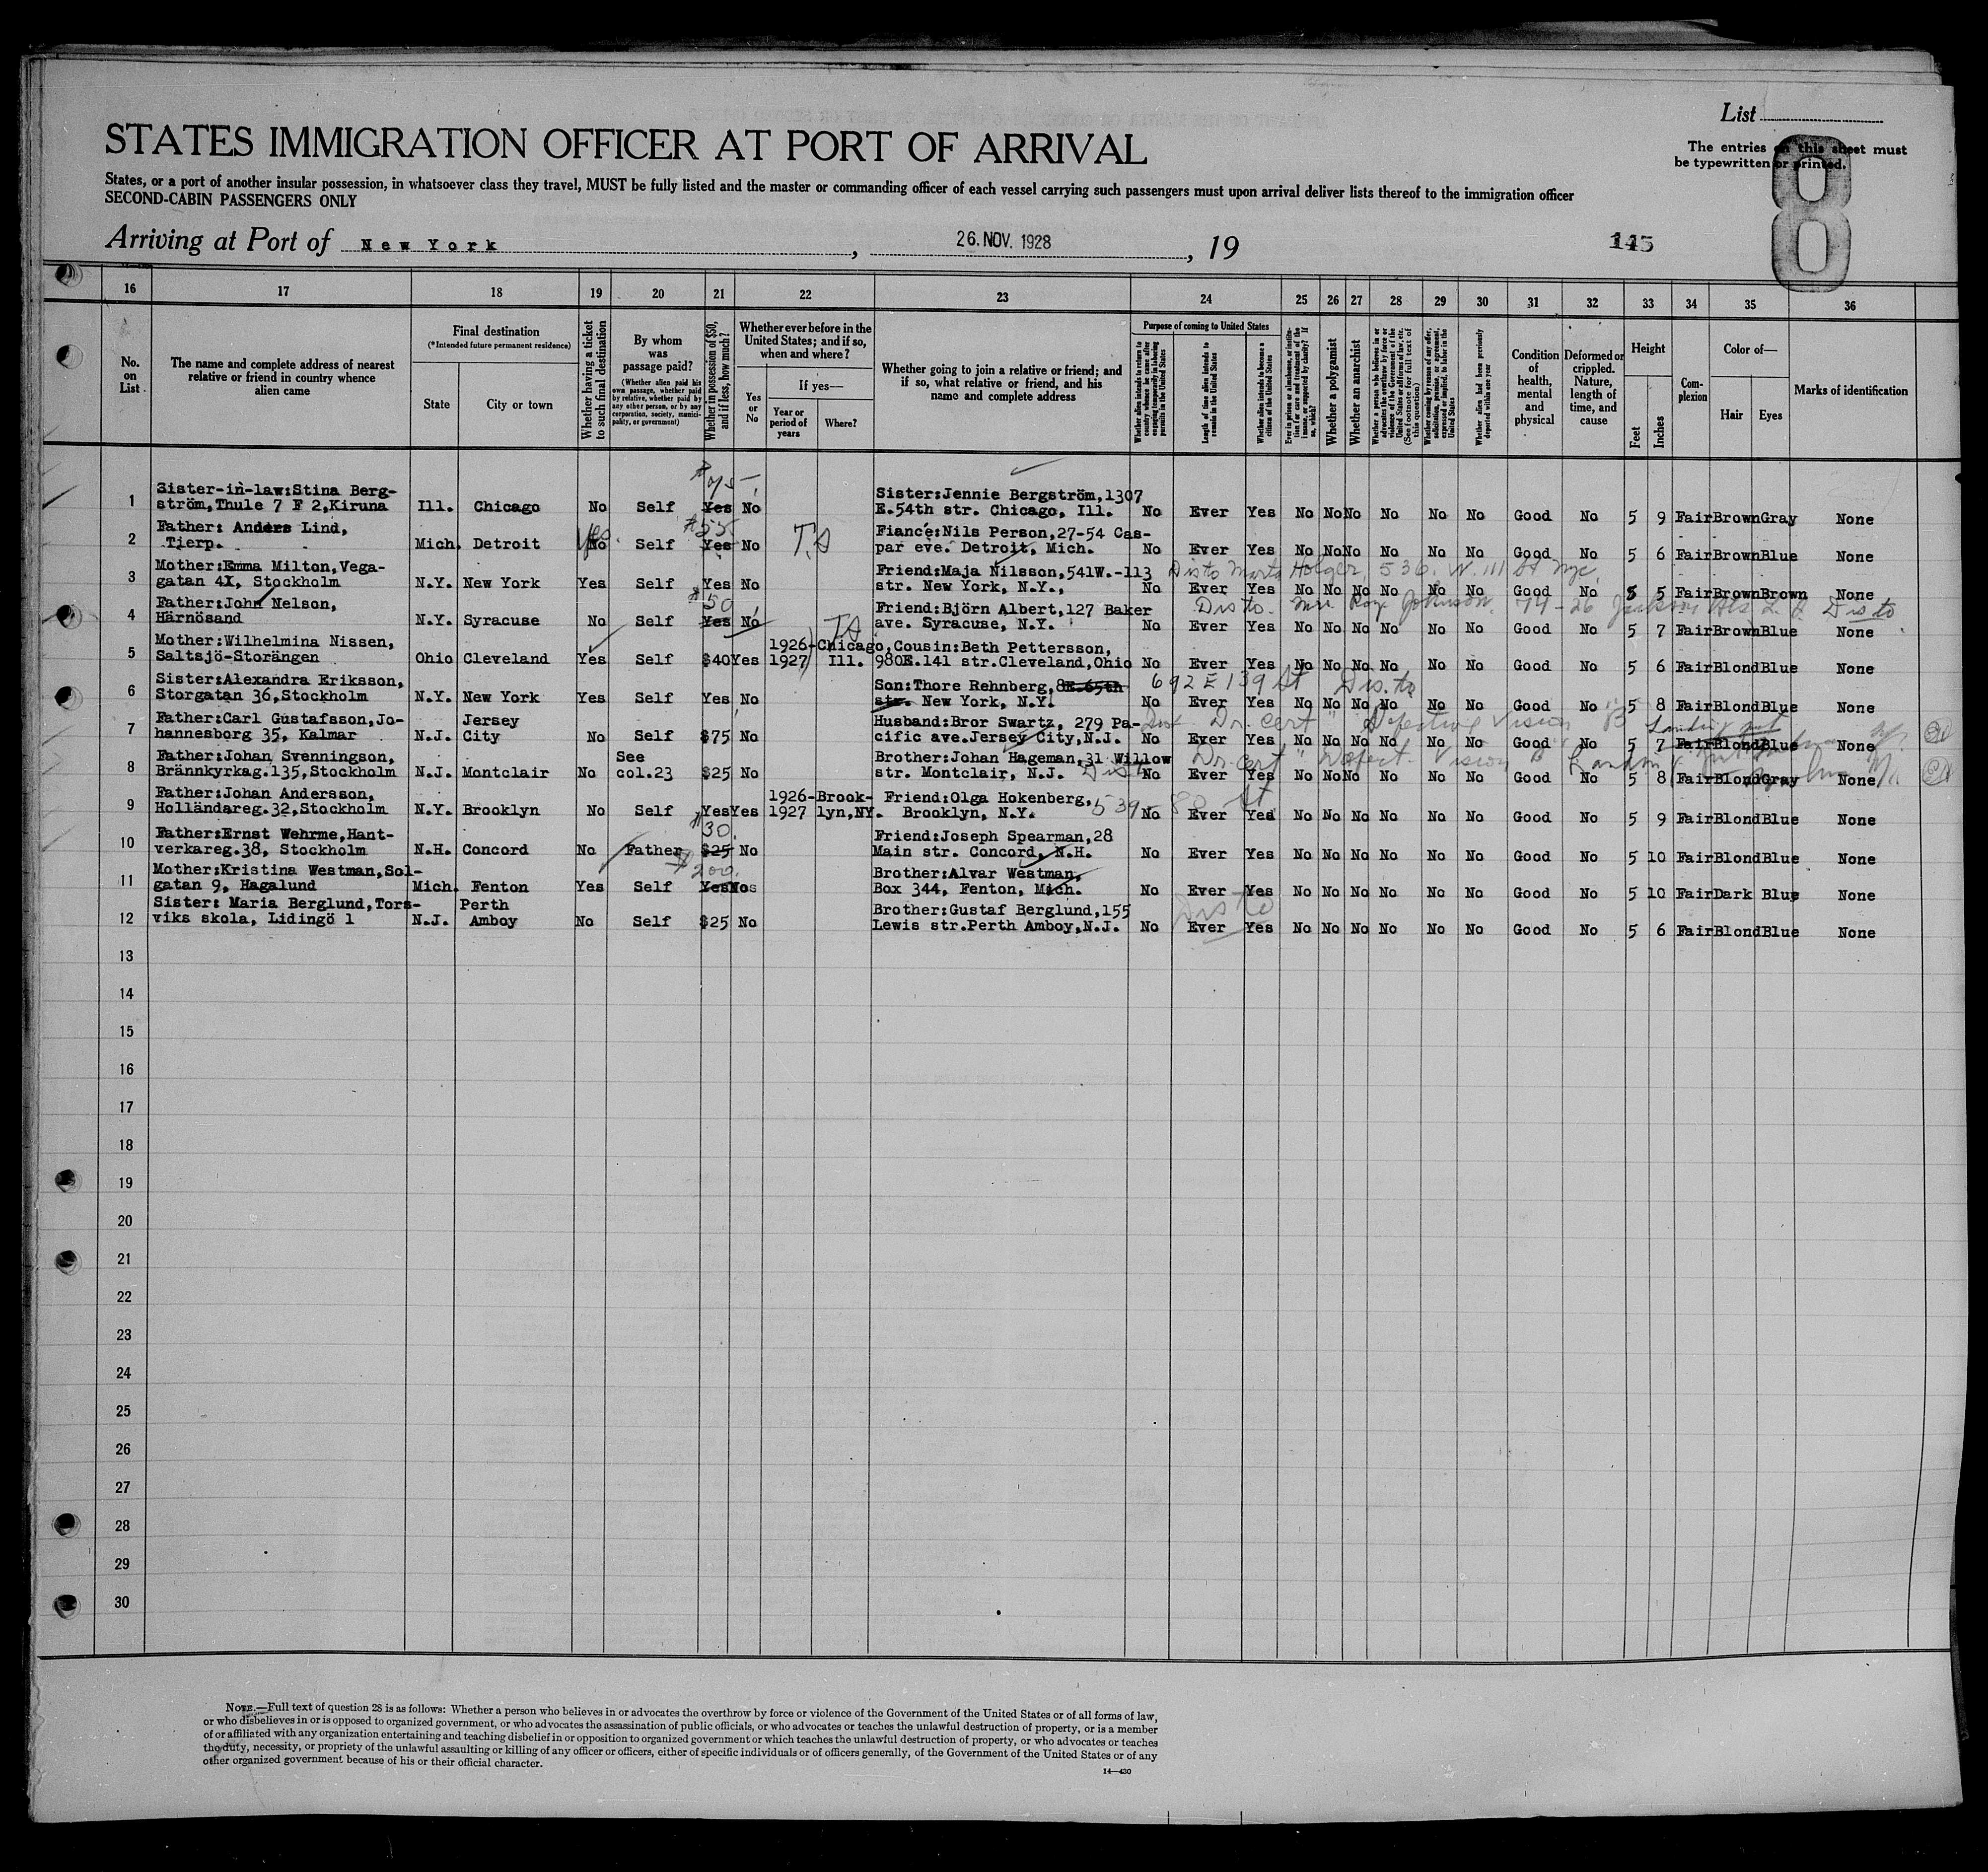 List
The entries on this sheet must
be typewritten or printed.
8
STATES IMMIGRATION OFFICER AT PORT OF ARRIVAL
States, or a port of another insular possession, in whatsoever class they travel, MUST be fully listed and the master or commanding officer of each vessel carrying such passengers must upon arrival deliver lists thereof to the immigration officer
SECOND-CABIN PASSENGERS ONLY
Arriving at Port of New York, 26. NOV. 1928, 19
145
16 17 18 19 20 21 22 23 24 25 26 27 28 29 30 31 32 33 34 35 36
No. on List
The name and complete address of nearest relative or friend in country whence alien came
Final destination
(*Intended future permanent residence)
State
City or town
Whether having a ticket to such final destination
By whom was passage paid?
(Whether alien paid his own passage, whether paid by relative, whether paid by any other person, or by any corporation, society, municipality, or government)
Whether in possession of $50, and if less, how much?
Whether ever before in the United States; and if so, when and where?
Yes or No
If yes—
Year or period of years
Where?
Whether going to join a relative or friend; and if so, what relative or friend, and his name and complete address
Purpose of coming to United States
Whether alien intends to return to country whence he came after engaging temporarily in laboring pursuits in the United States
Length of time alien intends to remain in the United States
Whether alien intends to become a citizen of the United States
Ever in prison or almshouse, or institution for care and treatment of the insane, or supported by charity? If so, which?
Whether a polygamist
Whether an anarchist
Whether a person who believes in or advocates the overthrow by force or violence of the Government of the United States or all forms of law, etc. (See footnote for full text of this question)
Whether coming by reason of any offer, solicitation, promise, or agreement, expressed or implied, to labor in the United States
Whether alien had been previously deported within one year
Condition of health, mental and physical
Deformed or crippled. Nature, length of time, and cause
Height
Feet
Inches
Complexion
Color of—
Hair
Eyes
Marks of identification
$75
Sister-in-law:Stina Berg- Sister:Jennie Bergström,1307
1 ström,Thule 7 F 2,Kiruna Ill. Chicago No Self Yes No E.54th str. Chicago, Ill. No Ever Yes No No No No No No Good No 5 9 Fair Brown Gray None
Father: Anders Lind, Yes $55 Fiancé:Nils Person,27-54 Cas-
2 Tierp. Mich. Detroit No Self Yes No T.A par eve. Detroit, Mich. No Ever Yes No No No No No No Good No 5 6 Fair Brown Blue None
Mother:Emma Milton,Vega- Friend:Maja Nilsson,541W.-113 Dis to Marta Holger, 536. W. 111 St nyc.
3 gatan 4X, Stockholm N.Y. New York Yes Self Yes No str. New York, N.Y., No Ever Yes No No No No No No Good No 5 5 Fair Brown Brown None
Father:John Nelson, $50 Friend:Björn Albert,127 Baker Dis to. Mrs. Roy Johnson. 74-26 Dis to
4 Härnösand N.Y. Syracuse No Self Yes No ave. Syracuse, N.Y. No Ever Yes No No No No No No Good No 5 7 Fair Brown Blue None
Mother:Wilhelmina Nissen, T.A 1926-Chicago, Cousin:Beth Pettersson,
5 Saltsjö-Storängen Ohio Cleveland Yes Self $40 Yes 1927 Ill. 980E.141 str.Cleveland,Ohio No Ever Yes No No No No No No Good No 5 6 Fair Blond Blue None
Sister:Alexandra Eriksson, Son:Thore Rehnberg,8E.65th 692 E 139 St Dis. to
6 Storgatan 36,Stockholm N.Y. New York Yes Self Yes No str. New York, N.Y. No Ever Yes No No No No No No Good No 5 8 Fair Blond Blue None
Father:Carl Gustafsson,Jo- Jersey Husband:Bror Swartz, 279 Pa- Dr. cert "Defective Vision B"
7 hannesborg 35, Kalmar N.J. City No Self $75 No cific ave.Jersey City,N.J. No Ever Yes No No No No No No Good No 5 7 Fair Blond Blue None
Father:Johan Svenningson, See Brother:Johan Hageman,31 Willow Dr. cert "Defect. Vision B"
8 Brännkyrkag.135,Stockholm N.J. Montclair No col.23 $25 No str. Montclair, N.J. No Ever Yes No No No No No No Good No 5 8 Fair Blond Gray None
Father:Johan Andersson, 1926-Brook- Friend:Olga Hokenberg, 539 - 80 St
9 Holländareg.32,Stockholm N.Y. Brooklyn No Self Yes Yes 1927 lyn,NY. Brooklyn, N.Y. No Ever Yes No No No No No No Good No 5 9 Fair Blond Blue None
Father:Ernst Wehrme,Hant- $30. Friend:Joseph Spearman,28
10 verkareg.38, Stockholm N.H. Concord No Father $25 No Main str. Concord, N.H. No Ever Yes No No No No No No Good No 5 10 Fair Blond Blue None
Mother:Kristina Westman,Sol- $200. Brother:Alvar Westman,
11 gatan 9, Hagalund Mich. Fenton Yes Self Yes No Box 344, Fenton, Mich. No Ever Yes No No No No No No Good No 5 10 Fair Dark Blue None
Sister: Maria Berglund,Tors- Perth Brother:Gustaf Berglund,155 Dis to
12 viks skola, Lidingö 1 N.J. Amboy No Self $25 No Lewis str.Perth Amboy,N.J. No Ever Yes No No No No No No Good No 5 6 Fair Blond Blue None
13
14
15
16
17
18
19
20
21
22
23
24
25
26
27
28
29
30
NOTE.—Full text of question 28 is as follows: Whether a person who believes in or advocates the overthrow by force or violence of the Government of the United States or of all forms of law,
or who disbelieves in or is opposed to organized government, or who advocates the assassination of public officials, or who advocates or teaches the unlawful destruction of property, or is a member
of or affiliated with any organization entertaining and teaching disbelief in or opposition to organized government or which teaches the unlawful destruction of property, or who advocates or teaches
the duty, necessity, or propriety of the unlawful assaulting or killing of any officer or officers, either of specific individuals or of officers generally, of the Government of the United States or of any
other organized government because of his or their official character.
14—430